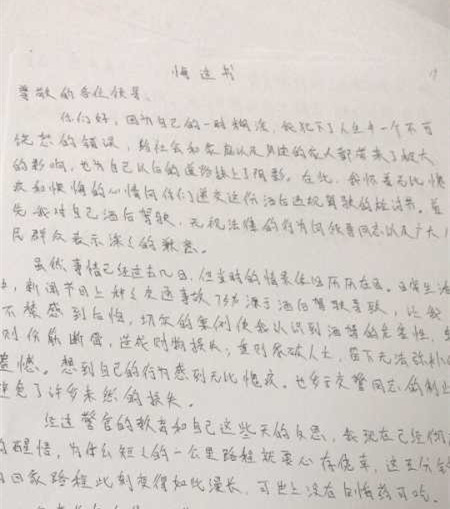 悔过书
尊敬的各位领导:
你们好,因为自己的一时糊涂,我犯下了人生中一个不可
饶恕的错误,给社会和家庭以及身边的家人都带来了极大
的影响,也为自己以后的道路抹上了阴影。在此,我怀着无比愧
疚和懊悔的心情向你们递交这份酒后违规驾驶的检讨书。首
先我对自己酒后驾驶,无视法律的行为向领导同志以及广大人
民群众表示深深的歉意。
虽然事情已经过去几日,但当时的情景依旧历历在目。日常生活
中,新闻节目上种种交通事故乃多源于酒后驾驶导致,让我
不禁感到后怕,切实的案例使我认识到酒驾的危害性,轻
则伤筋断骨,造成财物损失;重则家破人亡,留下无法弥补的
遗憾。想到自己的行为感到无比愧疚。也多亏交警同志的制止
避免了许多未然的损失。
经过警官的教育和自己这些天的反思,我现在已经
的醒悟,为什么短短的一公里路程就要心存侥幸,这五分钟
的回家路程此刻变得如此漫长,可世上没有后悔药可吃。